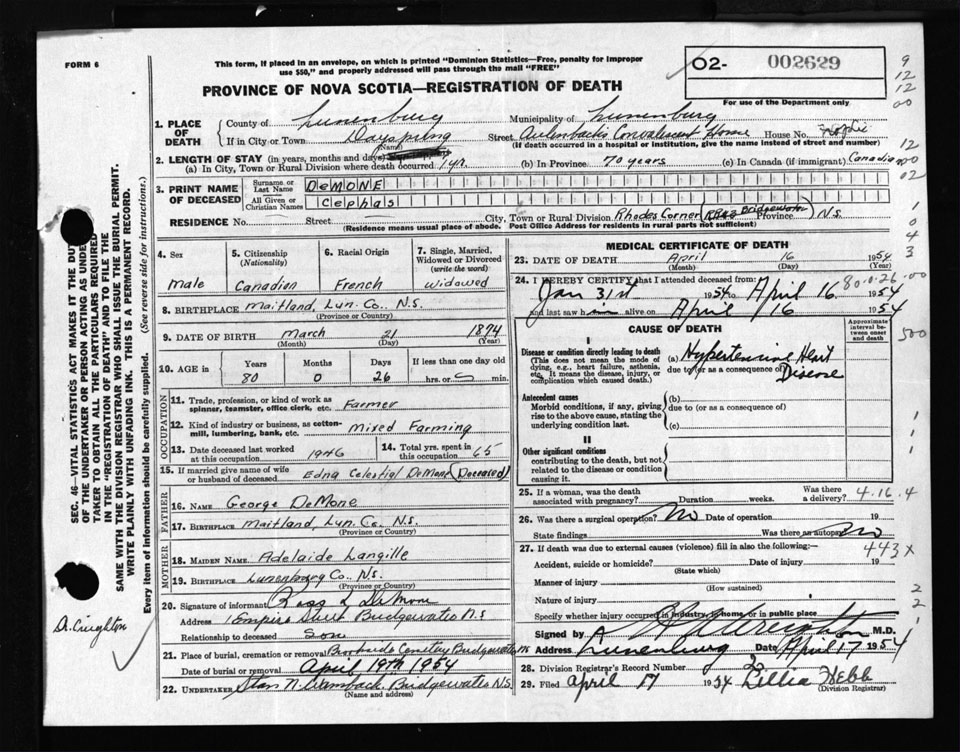 FORM 6
This form, if placed in an envelope, on which is printed "Dominion Statistics—Free, penalty for improper
use $50," and properly addressed will pass through the mail "FREE"
02- 002629
For use of the Department only
PROVINCE OF NOVA SCOTIA—REGISTRATION OF DEATH
1. PLACE OF DEATH
County of Lunenburg Municipality of Lunenburg
If in City or Town Dayspring Street Aulenbacks Convalescent Home House No.
(Name) (If death occurred in a hospital or institution, give the name instead of street and number)
2. LENGTH OF STAY (in years, months and days)
(a) In City, Town or Rural Division where death occurred 1 yr. (b) In Province 70 years (c) In Canada (if immigrant) Canadian
3. PRINT NAME OF DECEASED
Surname or Last Name DeMONE
All Given or Christian Names Cephas
RESIDENCE No. Street City, Town or Rural Division Rhodes Corner (RR#2 Bridgewater) Province N.S.
(Residence means usual place of abode. Post Office Address for residents in rural parts not sufficient)
4. Sex Male
5. Citizenship (Nationality) Canadian
6. Racial Origin French
7. Single, Married, Widowed or Divorced (write the word) widowed
8. BIRTHPLACE Maitland, Lun. Co., N.S.
(Province or Country)
9. DATE OF BIRTH March 21 1874
(Month) (Day) (Year)
10. AGE in Years 80 Months 0 Days 26 If less than one day old hrs. or min.
OCCUPATION
11. Trade, profession, or kind of work as spinner, teamster, office clerk, etc. Farmer
12. Kind of industry or business, as cotton-mill, lumbering, bank, etc. Mixed Farming
13. Date deceased last worked at this occupation 1946
14. Total yrs. spent in this occupation 65
15. If married give name of wife or husband of deceased Edna Celestial DeMone (Deceased)
FATHER
16. NAME George DeMone
17. BIRTHPLACE Maitland, Lun. Co. N.S.
(Province or Country)
MOTHER
18. MAIDEN NAME Adelaide Langille
19. BIRTHPLACE Lunenburg Co., N.S.
(Province or Country)
20. Signature of informant Ross L DeMone
Address Empire Street Bridgewater N.S
Relationship to deceased Son
21. Place of burial, cremation or removal Brookside Cemetery Bridgewater NS
Date of burial or removal April 19th 1954
22. UNDERTAKER Stan N. Wamback. Bridgewater N.S.
(Name and address)
MEDICAL CERTIFICATE OF DEATH
23. DATE OF DEATH April 16 1954
(Month) (Day) (Year)
24. I HEREBY CERTIFY that I attended deceased from:
Jan 31st 1954 to April 16 1954
and last saw him alive on April 16 1954
CAUSE OF DEATH
Approximate interval between onset and death
I
Disease or condition directly leading to death
(This does not mean the mode of dying, e.g., heart failure, asthenia, etc. It means the disease, injury, or complication which caused death.)
(a) Hypertensive Heart Disease
due to (or as a consequence of)
Antecedent causes
Morbid conditions, if any, giving rise to the above cause, stating the underlying condition last.
(b)
due to (or as a consequence of)
(c)
II
Other significant conditions
contributing to the death, but not related to the disease or condition causing it.
25. If a woman, was the death associated with pregnancy? Duration weeks. Was there a delivery? 4.16.4
26. Was there a surgical operation? No Date of operation 19
State findings Was there an autopsy? No
27. If death was due to external causes (violence) fill in also the following:— 443X
Accident, suicide or homicide? Date of injury 19
(State which)
Manner of injury
(How sustained)
Nature of injury
Specify whether injury occurred in industry, home, or in public place
Signed by M.D.
Address Lunenburg Date April 17 1954
28. Division Registrar's Record Number 2
29. Filed April 17 1954 Lillia Hebb
(Division Registrar)
SEC. 46—VITAL STATISTICS ACT MAKES IT THE DUTY
OF THE UNDERTAKER OR PERSON ACTING AS UNDERTAKER
TO OBTAIN ALL THE PARTICULARS REQUIRED
IN THE "REGISTRATION OF DEATH" AND TO FILE THE
SAME WITH THE DIVISION REGISTRAR WHO SHALL ISSUE THE BURIAL PERMIT.
WRITE PLAINLY WITH UNFADING INK. THIS IS A PERMANENT RECORD.
Every item of information should be carefully supplied. (See reverse side for instructions.)